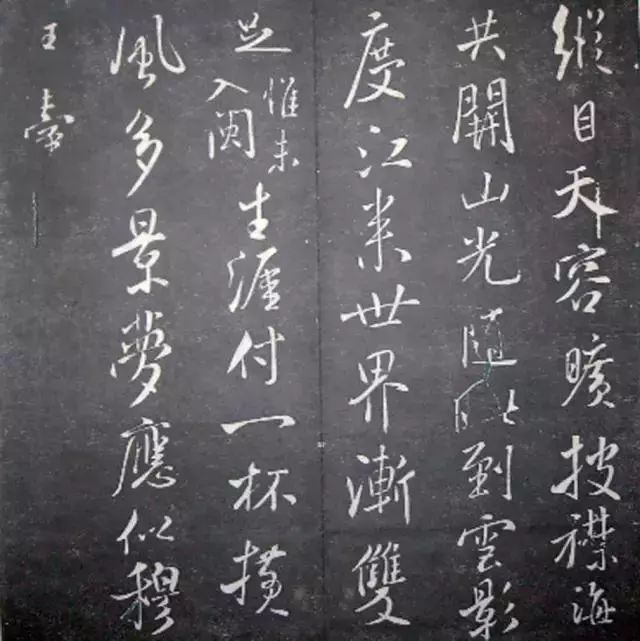 縱目天容曠披襟海
共開山光隨眺到雲影
度江來世界漸雙
足
惟未
入閩
生涯付一杯橫
風多景夢應似穆
王臺